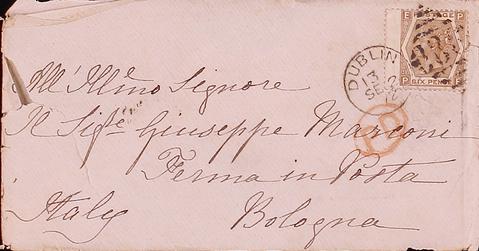 E POSTAGE P
P SIX PENCE E
DUBLIN
SE
PD
All' Illmo Signore
Il Sigre Giuseppe Marconi
Ferma in Posta
Italy Bologna